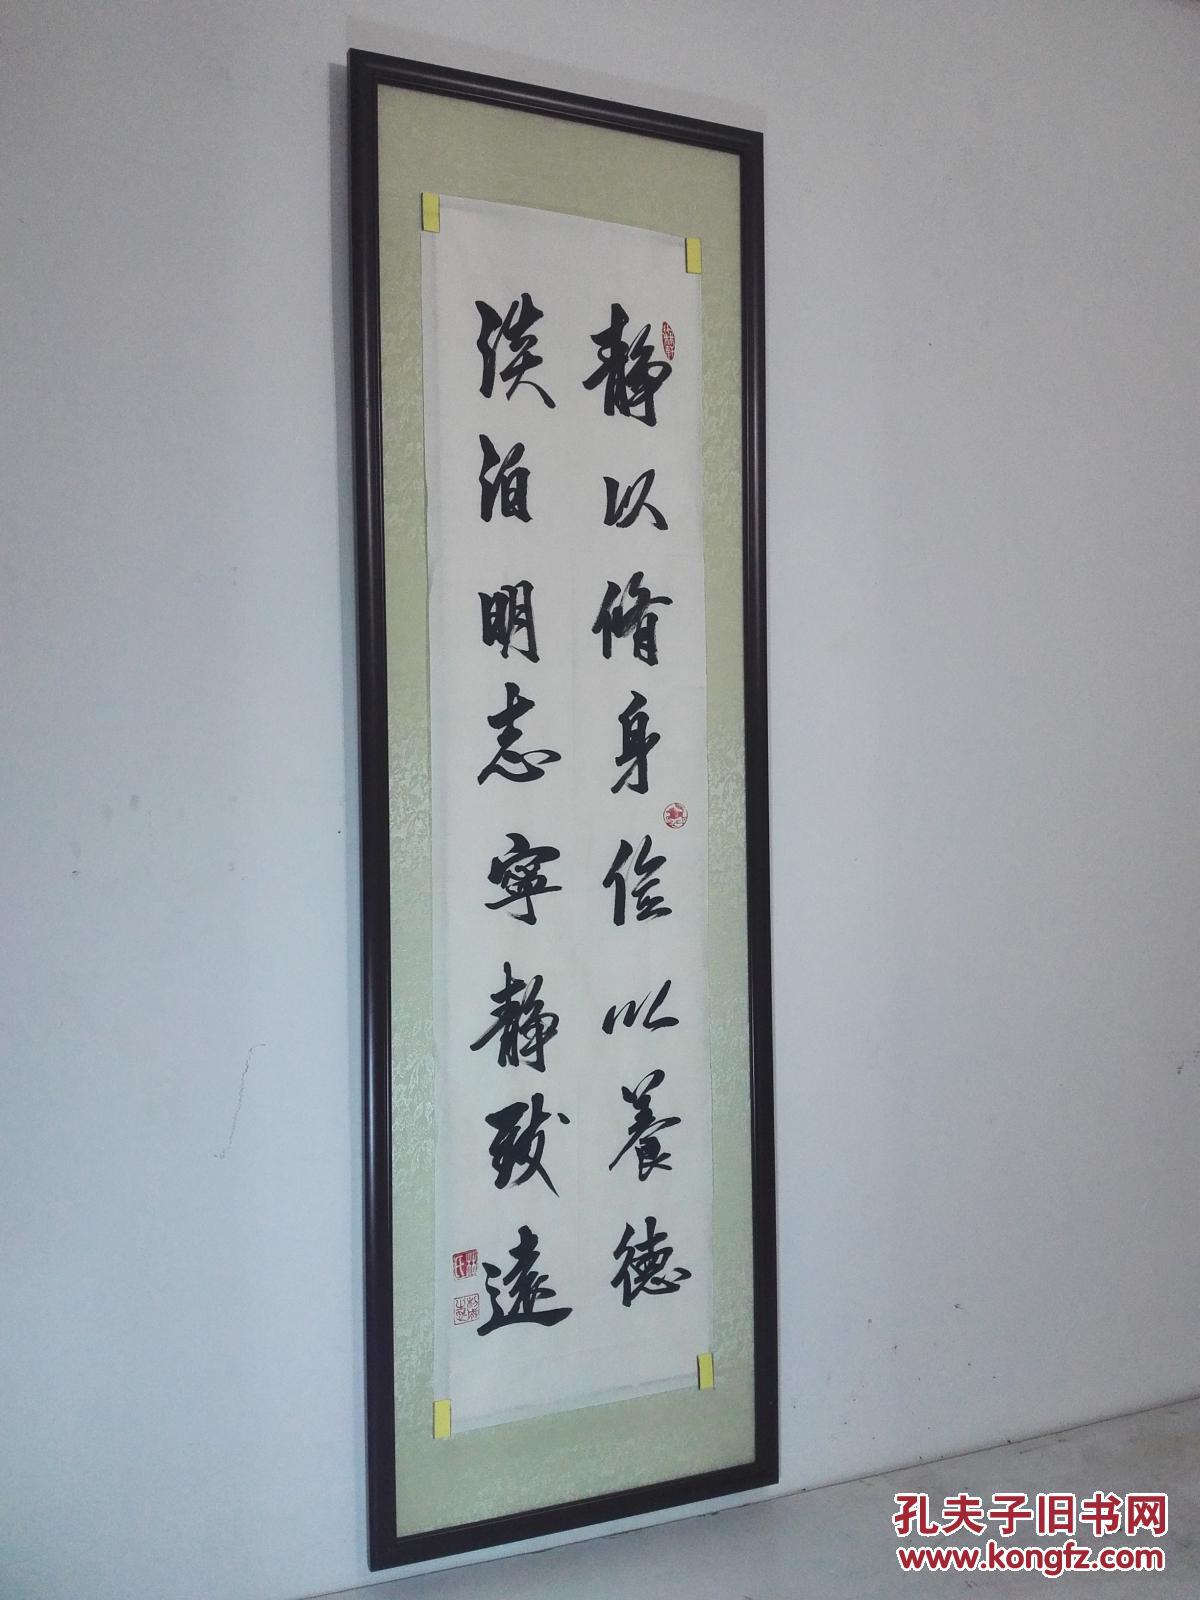 静以脩身儉以養德
淡泊明志寧靜致遠
孔夫子旧书网
www.kongfz.com